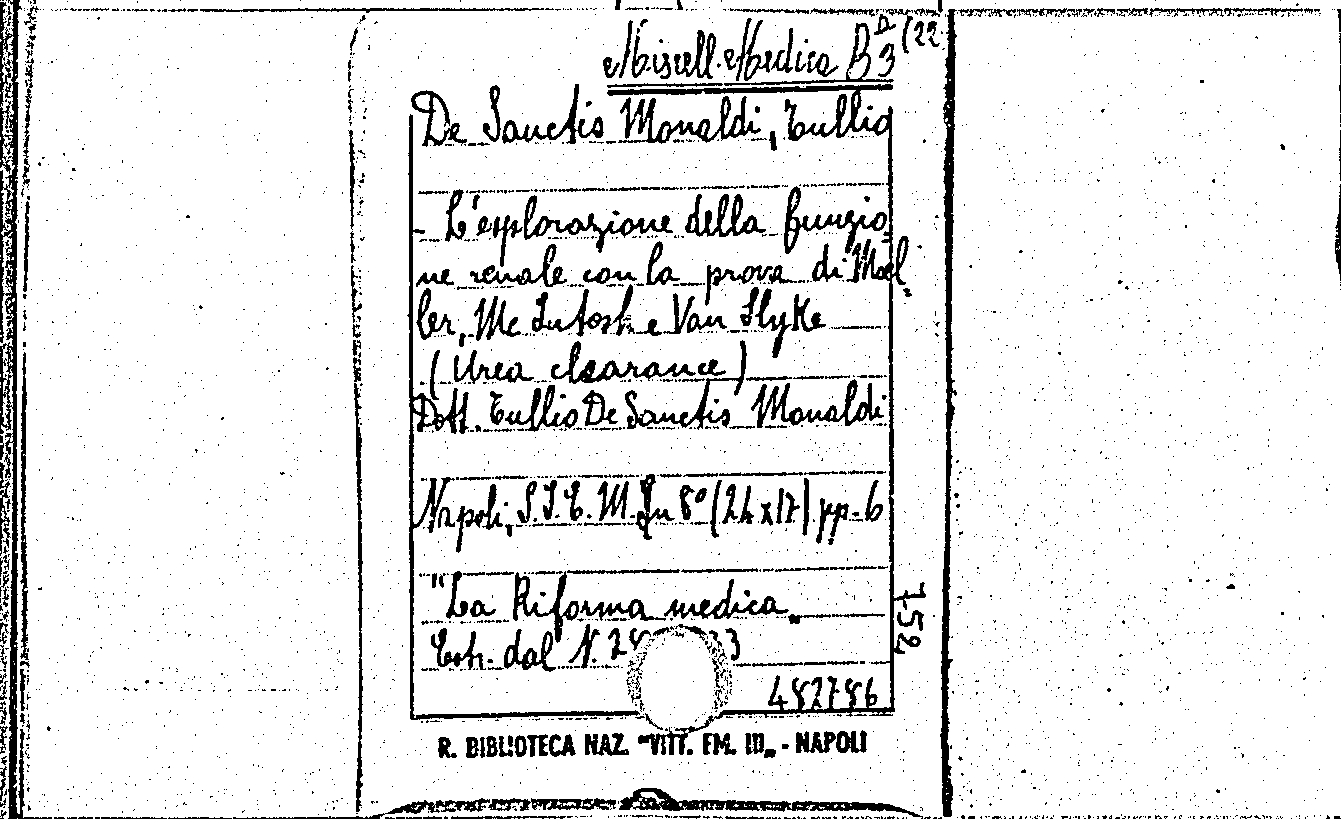 Miscell. Medica B D/3 (22
De Sanctis Monaldi, Tullio
- L'esplorazione della funzio-
ne renale con la prova di Moel„
ler, Mc Intosh e Van Slyke
(Urea clearance)
Dott. Tullio De Sanctis Monaldi
Napoli, S.I.E.M. In 8° (24x17) pp. 6
"La Riforma medica„
Estr. dal N. 28 33
752
482786
R. BIBLIOTECA NAZ. "VITT. EM. III„ - NAPOLI